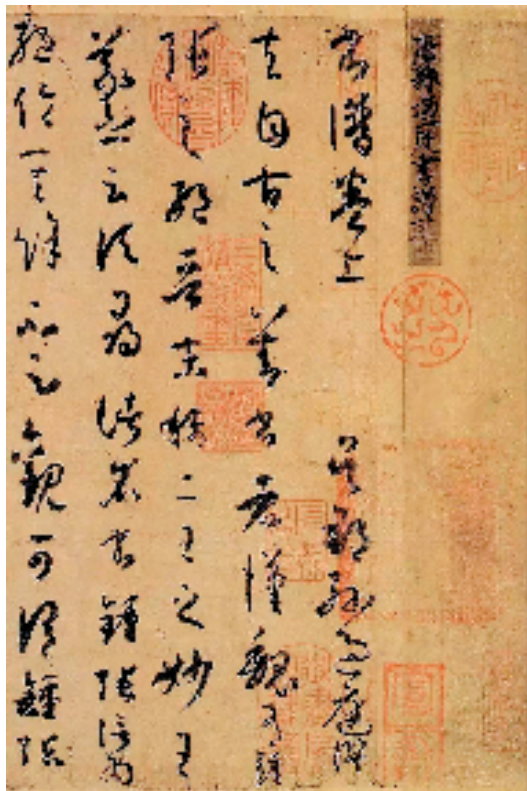 孫過庭書譜
書譜卷上 吳郡孫過庭撰
夫自古之善書者漢魏有鍾
張之絕晉末稱二王之妙王
羲之云頃尋諸名書鍾張信為
絕倫其餘不足觀可謂鍾張